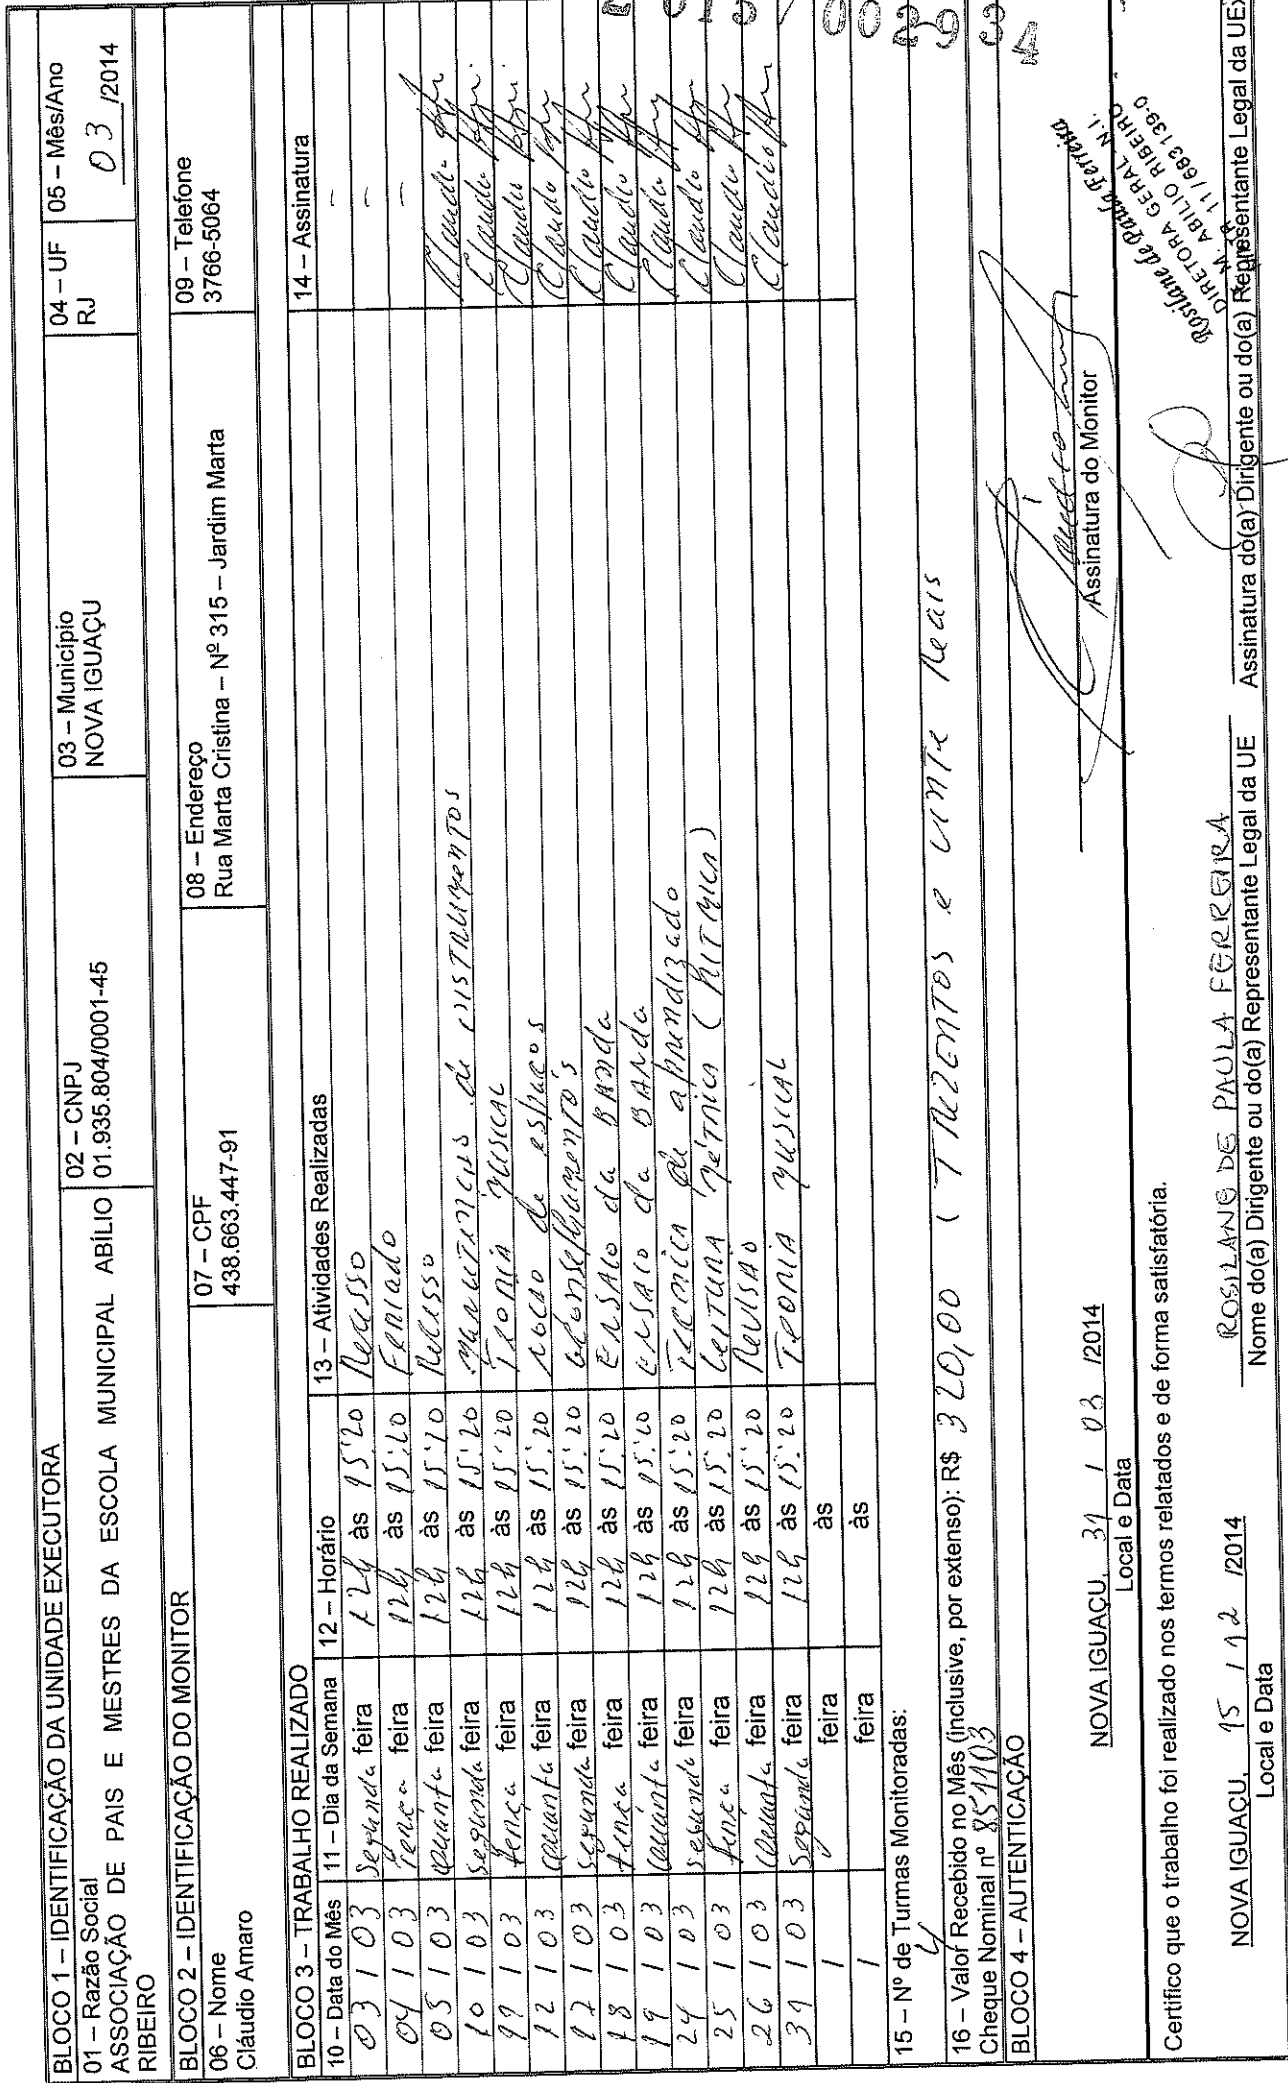 BLOCO 1 – IDENTIFICAÇÃO DA UNIDADE EXECUTORA
01 – Razão Social
ASSOCIAÇÃO DE PAIS E MESTRES DA ESCOLA MUNICIPAL ABÍLIO
RIBEIRO
02 – CNPJ
01.935.804/0001-45
03 – Município
NOVA IGUAÇU
04 – UF
RJ
05 – Mês/Ano
03 /2014
BLOCO 2 – IDENTIFICAÇÃO DO MONITOR
06 – Nome
Cláudio Amaro
07 – CPF
438.663.447-91
08 – Endereço
Rua Marta Cristina – Nº 315 – Jardim Marta
09 – Telefone
3766-5064
BLOCO 3 – TRABALHO REALIZADO
10 – Data do Mês 11 – Dia da Semana 12 – Horário 13 – Atividades Realizadas 14 – Assinatura
03 / 03 segunda feira 12h às 15:20 Recesso –
04 / 03 Terça feira 12h às 15:20 Feriado –
05 / 03 Quarta feira 12h às 15:20 Recesso –
10 / 03 segunda feira 12h às 15:20 de instrumentos Claudio
11 / 03 terça feira 12h às 15:20 Teoria musical Claudio
12 / 03 Quarta feira 12h às 15:20 nocao de espacos Claudio
17 / 03 segunda feira 12h às 15:20 Claudio
18 / 03 terça feira 12h às 15:20 ensaio da Banda Claudio
19 / 03 Quarta feira 12h às 15:20 ensaio da BANDA Claudio
24 / 03 segunda feira 12h às 15:20 Tecnica de aprendizado Claudio
25 / 03 terça feira 12h às 15:20 Leitura métrica (Ritmica) Claudio
26 / 03 Quarta feira 12h às 15:20 Revisão Claudio
31 / 03 segunda feira 12h às 15:20 Teoria musical Claudio
/ feira às
/ feira às
15 – Nº de Turmas Monitoradas:
4
16 – Valor Recebido no Mês (inclusive, por extenso): R$ 320,00 ( Trezentos e vinte Reais
Cheque Nominal nº 851103
BLOCO 4 – AUTENTICAÇÃO
NOVA IGUAÇU, 31 / 03 /2014
Local e Data
Assinatura do Monitor
Certifico que o trabalho foi realizado nos termos relatados e de forma satisfatória.
Rosilane de Paula Ferreira
DIRETORA GERAL - N.I.
ABILIO RIBEIRO
11 / 683 139-0
NOVA IGUAÇU, 15 / 12 /2014
Local e Data
ROSILANE DE PAULA FERREIRA
Nome do(a) Dirigente ou do(a) Representante Legal da UE
Assinatura do(a) Dirigente ou do(a) Representante Legal da UEx
002934